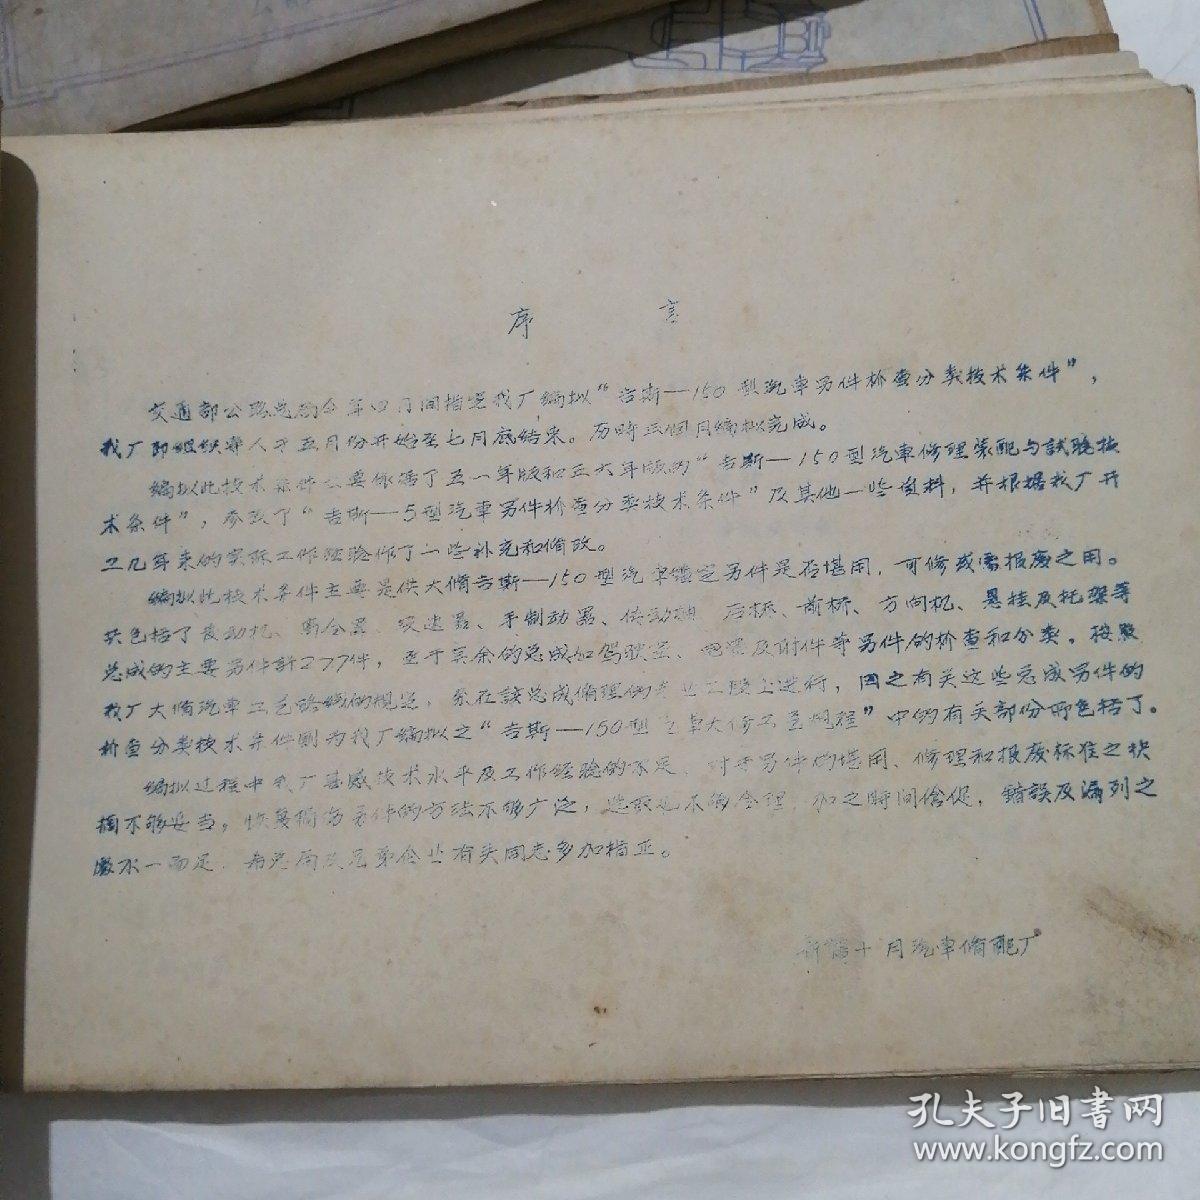 序 言
交通部公路总局今年四月间指定我厂编拟“吉斯—150型汽车另件检查分类技术条件”，
我厂即组织专人于五月份开始至七月底结束。历时三个月编拟完成。
编拟此技术条件主要依据了五一年版和五六年版的“吉斯—150型汽车修理装配与试验技
术条件”，参改了“吉斯—5型汽车另件检查分类技术条件”及其他一些资料，并根据我厂开
工几年来的实际工作经验作了一些补充和修改。
编拟此技术条件主要是供大修吉斯—150型汽车鉴定另件是否堪用，可修或需报废之用。
共包括了发动机、离合器、变速器、手制动器、传动轴、后桥、前桥、方向机、悬挂及托架等
总成的主要另件計277件，至于其余的总成如驾驶室、电器及附件等另件的检查和分类。按照
我厂大修汽车工艺路线的规定，系在該总成修理的专业工段上进行，因之有关这些总成另件的
检查分类技术条件则为我厂编拟之“吉斯—150型汽车大修工艺规程”中的有关部份所包括了。
编拟过程中我厂甚感技术水平及工作经验的不足，对于另件的堪用、修理和报废标准之
不够妥当，恢复损伤另件的方法不够广泛，选取也不够合理，加之時间倉促，錯誤及漏列之
處不一而足，希总局及兄弟企业有关同志多加指正。
新疆十月汽车修配厂
孔夫子旧书网
www.kongfz.com